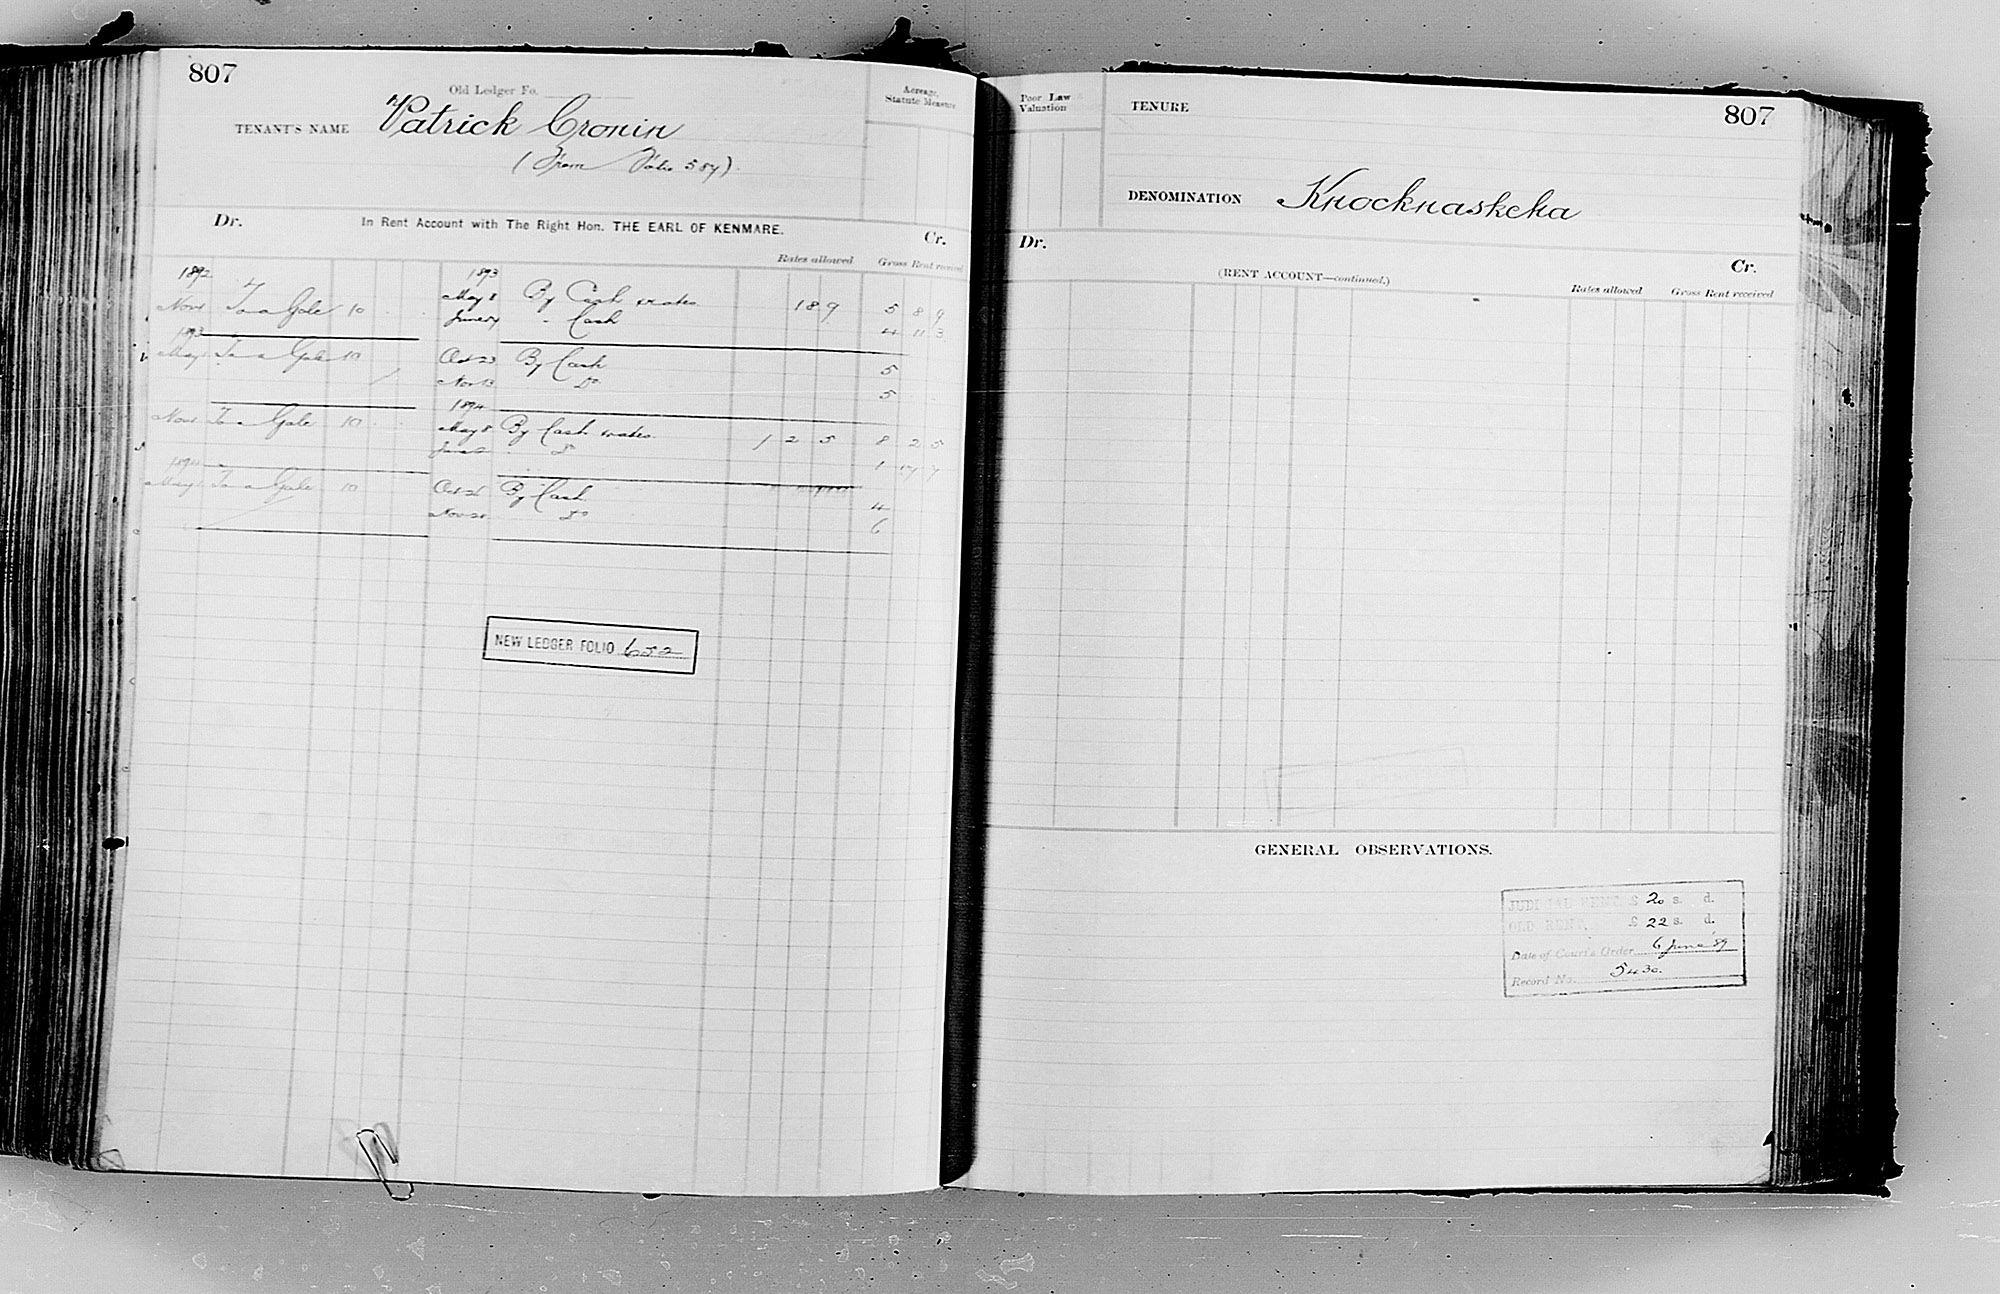 807
Old Ledger Fo.
TENANT'S NAME Patrick Cronin
(From Folio 587).
Acreage,
Statute Measure
Dr. In Rent Account with The Right Hon. THE EARL OF KENMARE. Cr.
Rates allowed Gross Rent received
1892 1893
Nov To a Gale 10 May 8 By Cash & rates 18 9 5 8 9
June 27 " Cash 4 11 3
1893
May To a Gale 10 Oct 23 By Cash 5
Nov 13 Do 5
1894
Nov To a Gale 10 May 8 By Cash & rates 1 2 5 8 2 5
June Do 1 17 7
1894
May To a Gale 10 Oct 26 By Cash 4
Nov 20 Do 6
NEW LEDGER FOLIO 652
Poor Law
Valuation
TENURE
807
DENOMINATION Knocknaskeha
Dr. Cr.
(RENT ACCOUNT—continued.)
Rates allowed Gross Rent received
GENERAL OBSERVATIONS.
JUDICIAL RENT £ 20 s. d.
OLD RENT, £ 22 s. d.
Date of Court's Order 6 June '89
Record No. 5430.